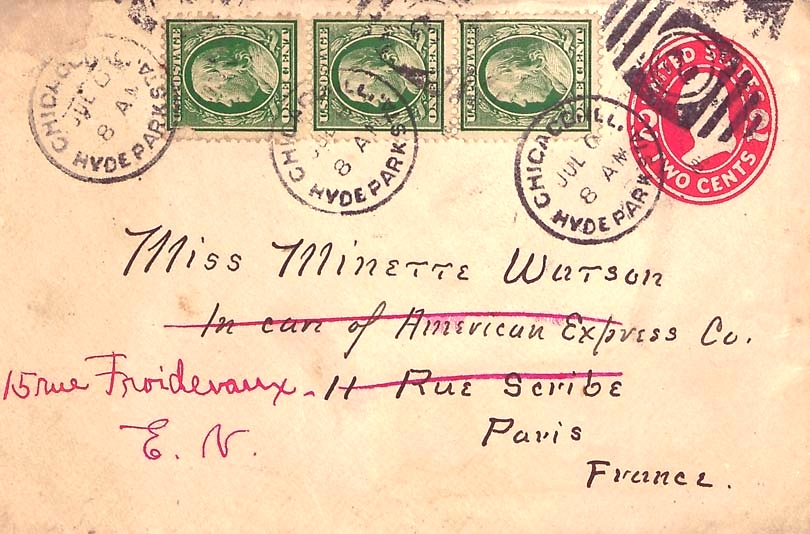 U.S. POSTAGE ONE CENT
U.S. POSTAGE ONE CENT
U.S. POSTAGE ONE CENT
UNITED STATES
2 2
TWO CENTS
CHICAGO, ILL.
JUL
8 AM
HYDE PARK STA.
CHICAGO, ILL.
JUL
8 AM
HYDE PARK STA.
CHICAGO, ILL.
JUL
8 AM
HYDE PARK STA.
Miss Minette Watson
In care of American Express Co.
15 rue Froidevaux - 11 Rue Scribe
E. V.
Paris
France.